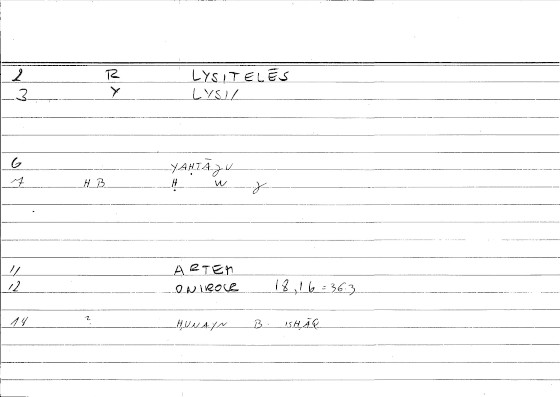 2 R LYSITELĒS
3 Y LYSI/
6 YAḤTĀǧU
7 HB Ḥ W ǧ
11 ARTEM
12 ONIROCR 18,16=363
14 ? ḤUNAYN B. ISḤĀQ